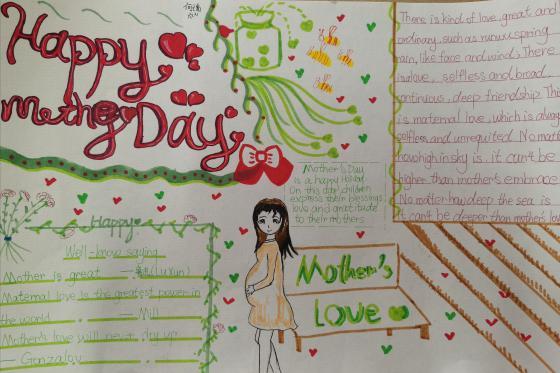 Happy
Mother Day
Mother's Day
is a happy
On this day children
express their blessings
love and gratitude
to their mothers
There is kind of love, great and
ordinary, such as spring
rain, like and wind. There
is love, selfless and broad
continuous, deep friendship. This
is maternal love, which is always
selfless and unrequited. No matter
how high in sky is, it can't be
higher than mother's embrace
No matter how deep the sea is
it can't be deeper than mother's love
Happy
Well-know saying
Mother is great — (LuXun)
Maternal love is the greatest power in
the world — Mill
Mother's love will never dry up
Mother's
LOVE